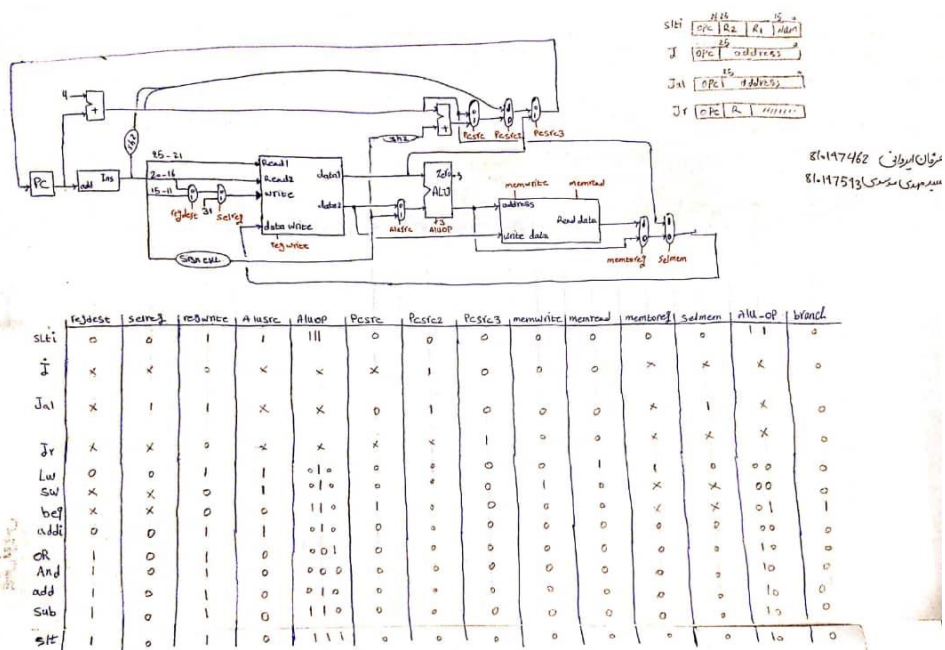 slti opc R2 R1 Num
26 25 15 0
J opc address
25 0
Jal opc address
25
Jr opc R
810197462
810197593
4
+
sh2
PC
add Ins
25-21
20-16
15-11
31
regdest
selreg
Read1
Read2
Write
data write
data1
data2
regwrite
sh2
+
Pcsrc
Pcsrc2
Pcsrc3
Zero
ALU
Alusrc
3
ALUOP
memwrite
memread
address
Read data
Write data
memtoreg
selmem
regdest selreg regwrite Alusrc AluoP Pcsrc Pcsrc2 Pcsrc3 memwrite memread memtoreg selmem Alu_op branch
slti 0 0 1 1 111 0 0 0 0 0 0 0 11 0
J x x 0 x x x 1 0 0 0 x x x 0
Jal x 1 1 x x 0 1 0 0 0 x 1 x 0
Jr x x 0 x x x x 1 0 0 x x x 0
Lw 0 0 1 1 010 0 0 0 0 1 1 0 00 0
sw x x 0 1 010 0 0 0 1 0 x x 00 0
beq x x 0 0 110 1 0 0 0 0 x x 01 1
addi 0 0 1 1 010 0 0 0 0 0 0 0 00 0
OR 1 0 1 0 001 0 0 0 0 0 0 0 10 0
And 1 0 1 0 000 0 0 0 0 0 0 0 10 0
add 1 0 1 0 010 0 0 0 0 0 0 0 10 0
sub 1 0 1 0 110 0 0 0 0 0 0 0 10 0
slt 1 0 1 0 111 0 0 0 0 0 0 0 10 0